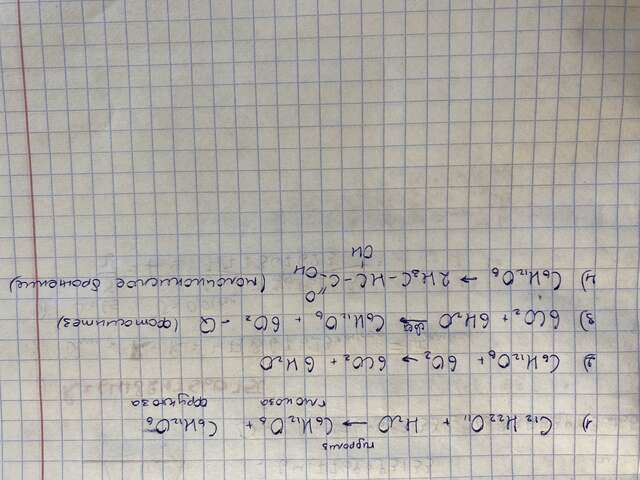 гидролиз
1) C12H22O11 + H2O → C6H12O6 + C6H12O6
глюкоза фруктоза
2) C6H12O6 + 6O2 → 6CO2 + 6H2O
3) 6CO2 + 6H2O свет→ C6H12O6 + 6O2 - Q (фотосинтез)
4) C6H12O6 → 2H3C-HC-C=O-OH (молочнокислое брожение)
OH